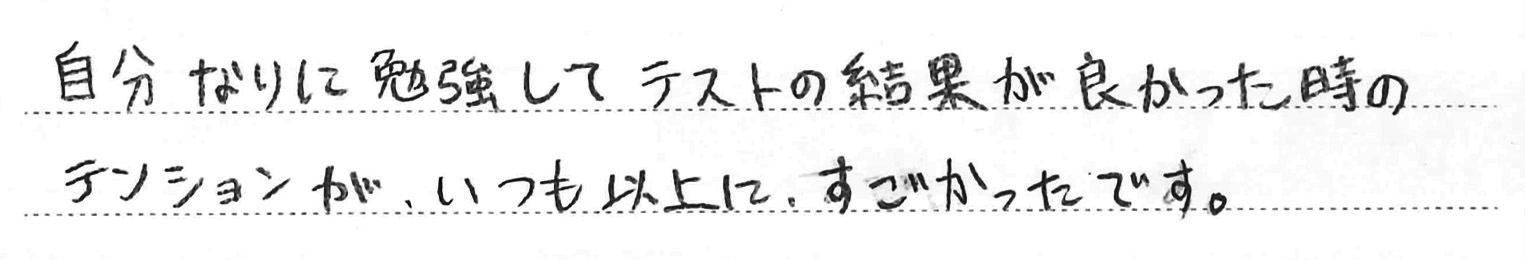 自分なりに勉強してテストの結果が良かった時の
テンションが、いつも以上に、すごかったです。